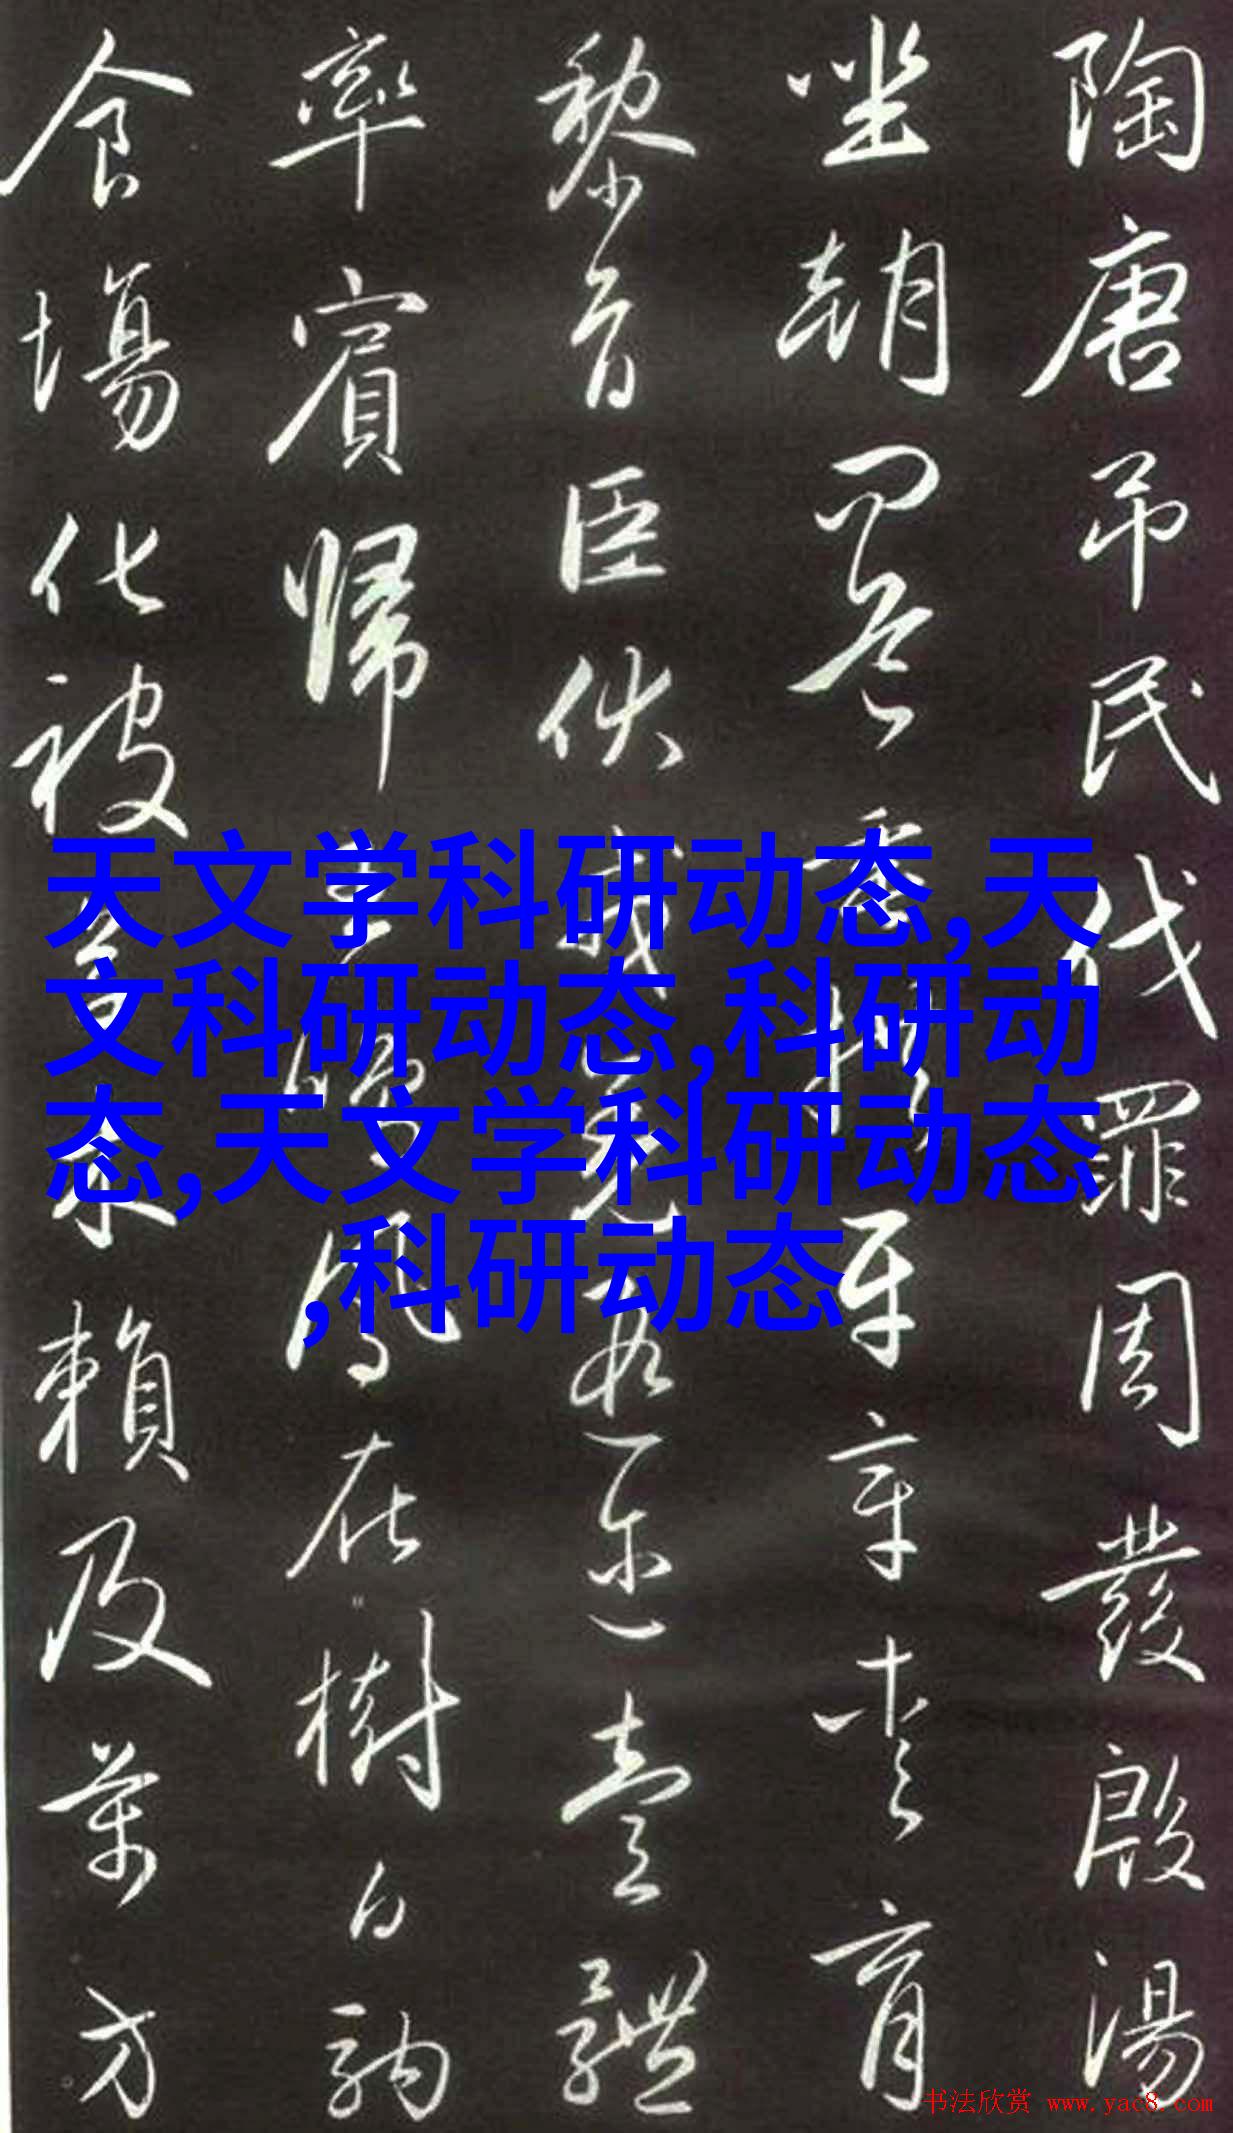 陶唐吊民伐罪周發殷湯
坐朝問道垂拱平章愛育
黎首臣伏戎羌遐迩壹體
率賓歸王鳴鳳在樹白駒
食場化被草木賴及萬方
天文学科研动态,天
文科研动态,科研动
态,天文学科研动态
,科研动态
书法欣赏 www.yac8.com